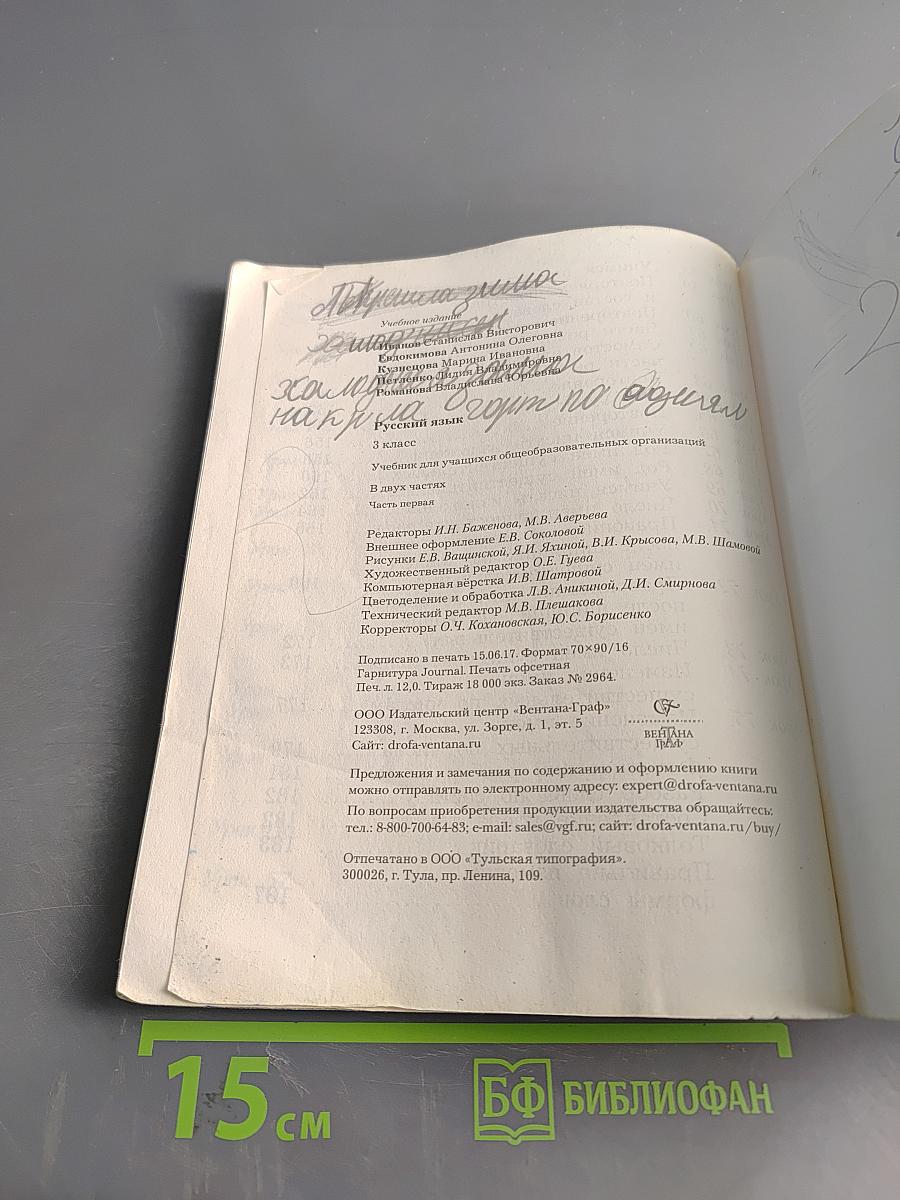 зима
Учебное издание
Иванов Станислав Викторович
Евдокимова Антонина Олеговна
Кузнецова Марина Ивановна
Петленко Лидия Владимировна
Романова Владислава Юрьевна
накрла горт по
Русский язык
3 класс
Учебник для учащихся общеобразовательных организаций
В двух частях
Часть первая
Редакторы И.Н. Баженова, М.В. Аверьева
Внешнее оформление Е.В. Соколовой
Рисунки Е.В. Ващинской, Я.И. Яхиной, В.И. Крысова, М.В. Шамовой
Художественный редактор О.Е. Гуева
Компьютерная вёрстка И.В. Шатровой
Цветоделение и обработка Л.В. Аникиной, Д.И. Смирнова
Технический редактор М.В. Плешакова
Корректоры О.Ч. Кохановская, Ю.С. Борисенко
Подписано в печать 15.06.17. Формат 70×90/16
Гарнитура Journal. Печать офсетная
Печ. л. 12,0. Тираж 18 000 экз. Заказ № 2964.
ООО Издательский центр «Вентана-Граф»
123308, г. Москва, ул. Зорге, д. 1, эт. 5
Сайт: drofa-ventana.ru
ИЗДАТЕЛЬСКИЙ ЦЕНТР
ВЕНТАНА
ГРАФ
Предложения и замечания по содержанию и оформлению книги
можно отправлять по электронному адресу: expert@drofa-ventana.ru
По вопросам приобретения продукции издательства обращайтесь:
тел.: 8-800-700-64-83; e-mail: sales@vgf.ru; сайт: drofa-ventana.ru/buy/
Отпечатано в ООО «Тульская типография».
300026, г. Тула, пр. Ленина, 109.
15 см
БФ БИБЛИОФАН